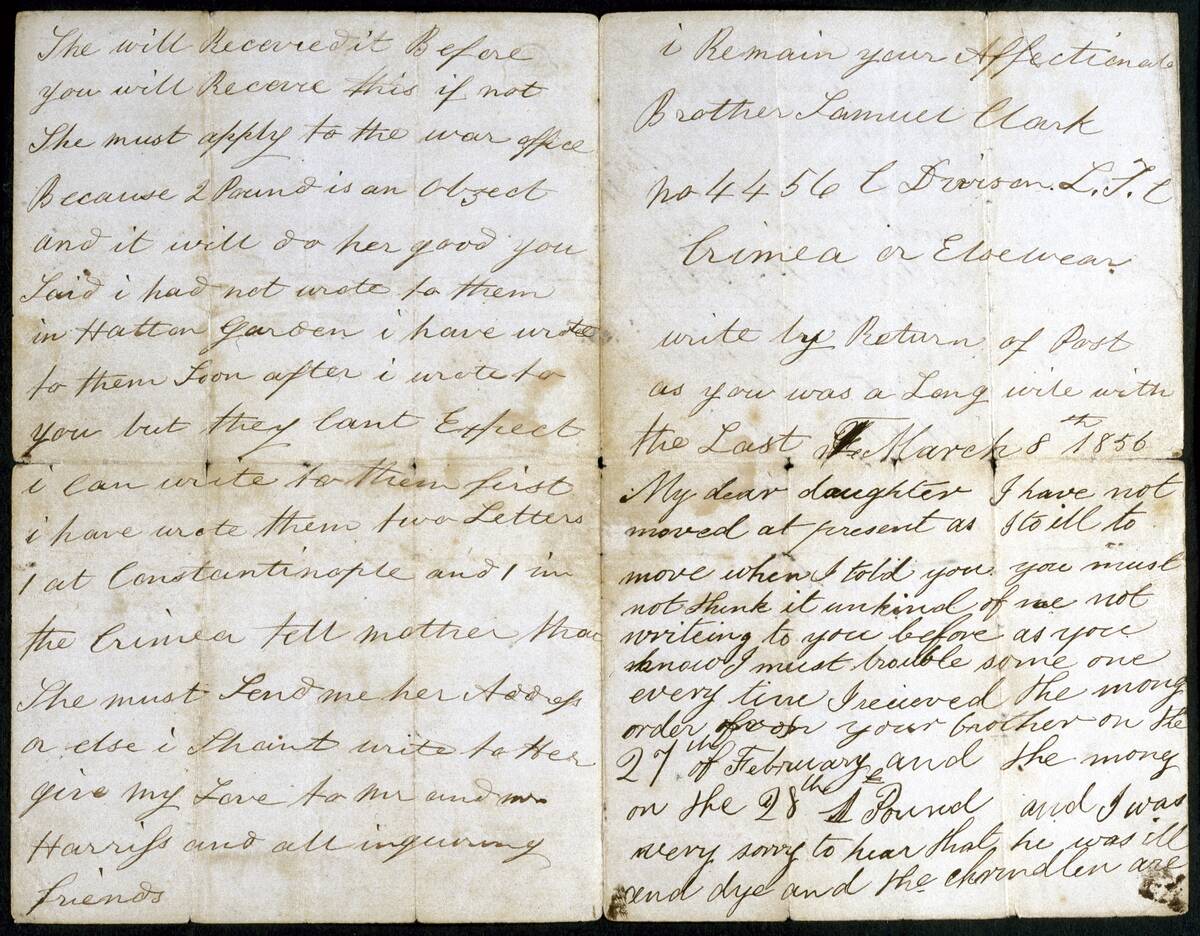 She will Recevedit Before
you will Receve this if not
She must apply to the war office
Because 2 Pound is an Obzect
and it will do her good you
Said i had not wrote to them
in Hatton Garden i have wrote
to them Soon after i wrote to
you but they Cant Expect
i can write to them first
i have wrote them two Letters
1 at Constantinople and 1 in
the Crimea tell mother that
She must Send me her Address
or else i Shant write to Her
give my Love to Mr and Mrs
Harriss and all inquiring
friends
i Remain your Affectionate
Brother Samuel Clark
no 4456 C Divison. L.T.C
Crimea or Elsewear
write by Return of Post
as you was a Long wile with
the Last March 8th 1856
My dear daughter I have not
moved at present as I to ill to
move when I told you you must
not think it unkind of me not
writeing to you before as you
know I must trouble some one
every time I recieved the mony
order from your brother on the
27th of February and the mony
on the 28th 1 Pound and I was
very sorry to hear that he was ill
and dye and the are